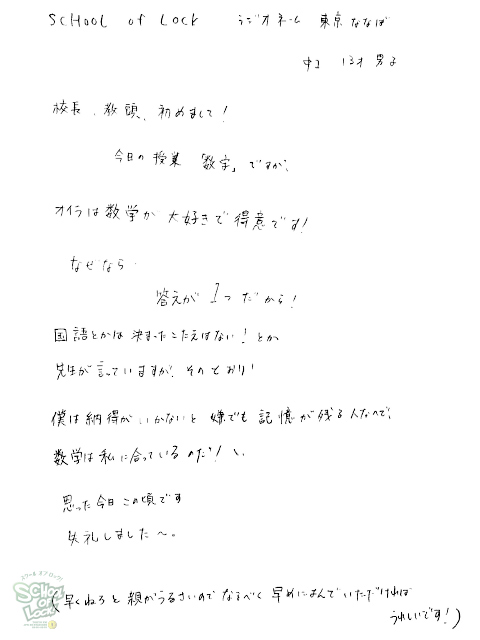 SCHOOL of LOCK ラジオネーム 東京ななば
中2 13才 男子
校長、教頭、初めまして!
今日の授業「数字」ですが、
オイラは数学が大好きで得意です!
なぜなら
答えが1つだから!
国語とかは決まったこたえはない!とか
先生が言っていますが、そのとおり!
僕は納得がいかないと嫌でも記憶が残る人なので、
数学は私に合っているのだ!と、
思った今日この頃です
失礼しました〜。
(早くねろと親がうるさいのでなるべく早めによんでいただければ
うれしいです!)
スクール オブ ロック!
SCHOOL OF LOCK!